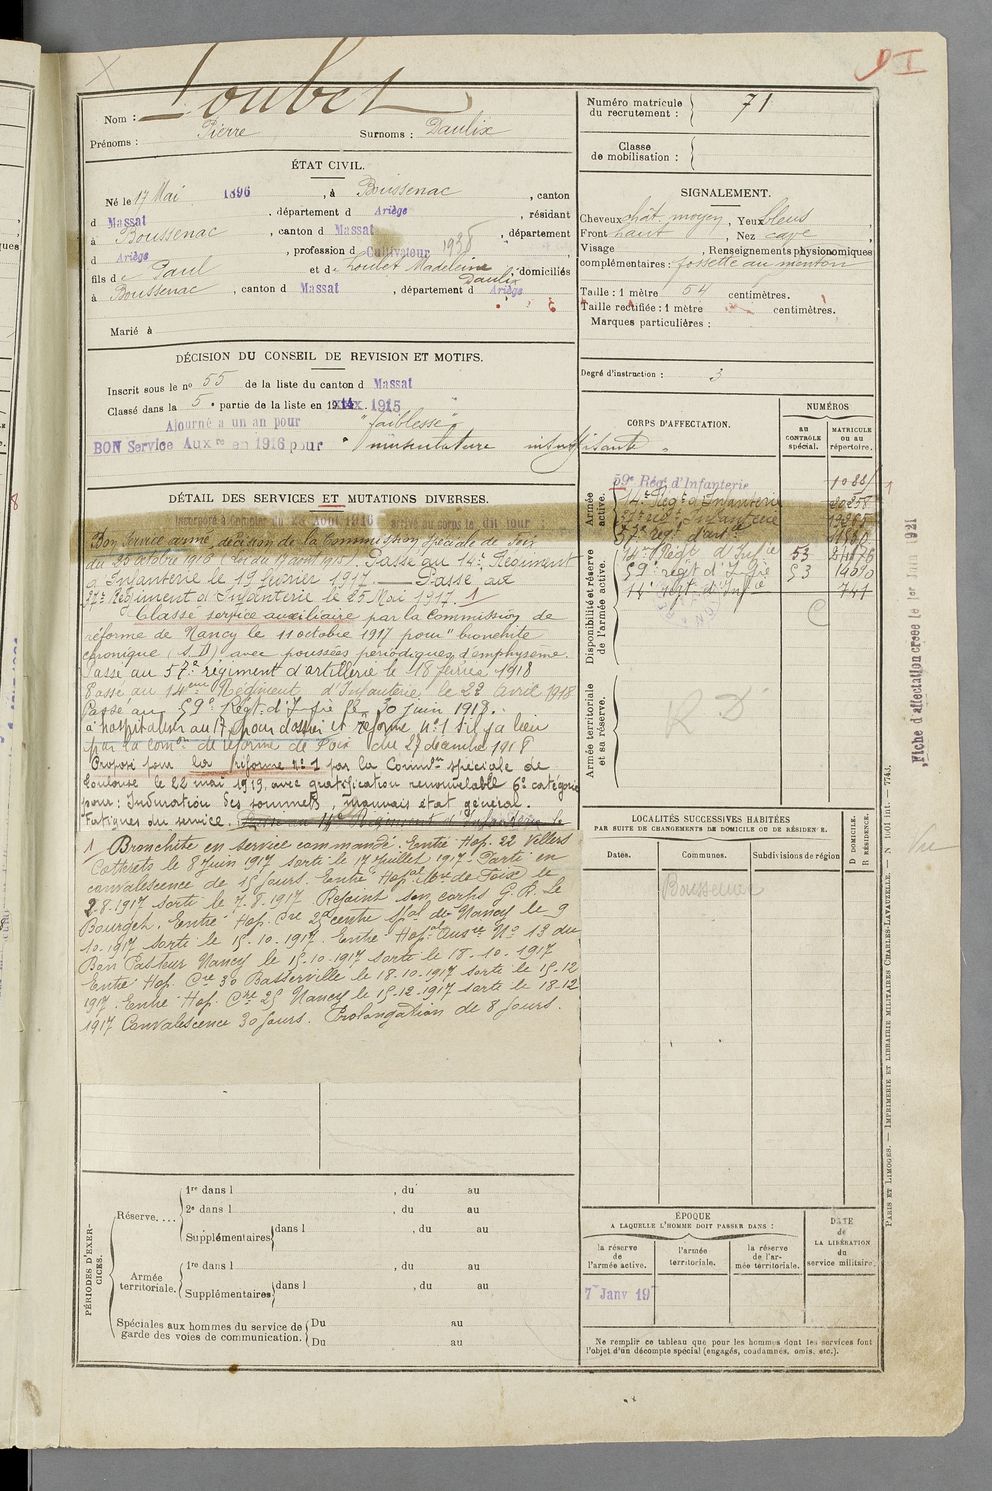 Loubet
Nom :
Prénoms : Pierre Surnoms : Daulix
ÉTAT CIVIL.
Né le 17 Mai 1896, à Boussenac, canton
d Massat, département d Ariège, résidant
à Boussenac, canton d Massat, département
d Ariège, profession d Cultivateur 1938
fils de Paul et de Loubet Madeleine domiciliés
Daulix
à Boussenac, canton d Massat, département d Ariège
Marié à
DÉCISION DU CONSEIL DE REVISION ET MOTIFS.
Inscrit sous le nº 55 de la liste du canton d Massat
Classé dans la 5e partie de la liste en 1915
Ajourné a un an pour "faiblesse"
BON Service Auxre en 1916 pour "musculature insuffisante"
DÉTAIL DES SERVICES ET MUTATIONS DIVERSES.
Incorporé à Compter du Août 1916 arrivé au corps le dit jour ;
Bon Service armé, décision de la Commission spéciale de Foix
du 25 octobre 1916 (Loi du 17 août 1915). Passé au 14e Régiment
d'Infanterie le 19 février 1917. — Passé au
37e Régiment d'Infanterie le 25 Mai 1917. 1
Classé service auxiliaire par la Commission de
réforme de Nancy le 11 octobre 1917 pour "bronchite
chronique (S. D) avec poussées périodiques d'emphysème.
Passé au 57e régiment d'artillerie le 18 février 1918
Passé au 14eme Régiment d'Infanterie le 22 Avril 1918
Passé au 59e Régt. d'Ifrie le 30 juin 1918.
à hospitaliser au 17 pour dossier et réforme nº 1 s'il y a lieu
par la Comon de réforme de Foix du 27 décembre 1918
Proposé pour la réforme nº 1 par la Common spéciale de
Toulouse le 22 mai 1919, avec gratification renouvelable 6e catégorie
pour : Induration des sommets, mauvais état général.
Fatigues du service. Passé au 14e Régiment d'Infanterie le
1 Bronchite en service commandé. Entré Hop. 22 Villers
Cotherets le 8 Juin 1917 sorti le 17 Juillet 1917. Parti en
convalescence de 15 jours. Entré Hopal de Foix le
2.8.1917 sorti le 7.8.1917 Rejoint son corps G. B. Le
Bourget. Entré Hop. Cre 25 centre spal de Nancy le 9
10.1917 sorti le 15.10.1917. Entré Hopal Auxre Nº 13 du
Bon Pasteur Nancy le 15.10.1917 sorti le 18.10.1917
Entré Hop. Cre 30 Basserville le 18.10.1917 sorti le 15.12
1917. Entré Hop. Cre 25 Nancy le 15.12.1917 sorti le 18.12
1917 Convalescence 30 jours. Prolongation de 8 jours.
PÉRIODES D'EXERCICES.
Réserve.....
1re dans l , du au
2e dans l , du au
Supplémentaires dans l , du au
Armée territoriale.
1re dans l , du au
Supplémentaires dans l , du au
Spéciales aux hommes du service de garde des voies de communication.
Du au
Du au
Numéro matricule du recrutement : 71
Classe de mobilisation :
SIGNALEMENT.
Cheveux chât. moyen, Yeux bleus
Front haut, Nez cave
Visage , Renseignements physionomiques
complémentaires : fossette au menton
Taille : 1 mètre 54 centimètres.
Taille rectifiée : 1 mètre centimètres.
Marques particulières :
Degré d'instruction : 3
CORPS D'AFFECTATION.
NUMÉROS
AU CONTRÔLE spécial.
MATRICULE ou au répertoire.
Armée active.
59e Rég. d'Infanterie
14e Régt d'Infanterie 20258
37e régt d'Infanterie
57e régt d'art
Disponibilité et réserve de l'armée active.
14e Régt d'Infie 53
59e régt d'Ifrie 53
14e régt d'Infie 741
Armée territoriale et sa réserve.
R D
LOCALITÉS SUCCESSIVES HABITÉES
PAR SUITE DE CHANGEMENTS DE DOMICILE OU DE RÉSIDENCE.
Dates.
Communes.
Subdivisions de région
D DOMICILE.
R RÉSIDENCE.
Boussenac
ÉPOQUE
A LAQUELLE L'HOMME DOIT PASSER DANS :
la réserve de l'armée active.
l'armée territoriale.
la réserve de l'armée territoriale.
DATE DE LA LIBÉRATION du service militaire.
Janv 19
Ne remplir ce tableau que pour les hommes dont les services font
l'objet d'un décompte spécial (engagés, condamnés, omis, etc.).
Fiche d'affectation créée le 1er Juin 1921
Vu
PARIS ET LIMOGES. — IMPRIMERIE ET LIBRAIRIE MILITAIRES CHARLES-LAVAUZELLE. — N 1501 int. — 7743.